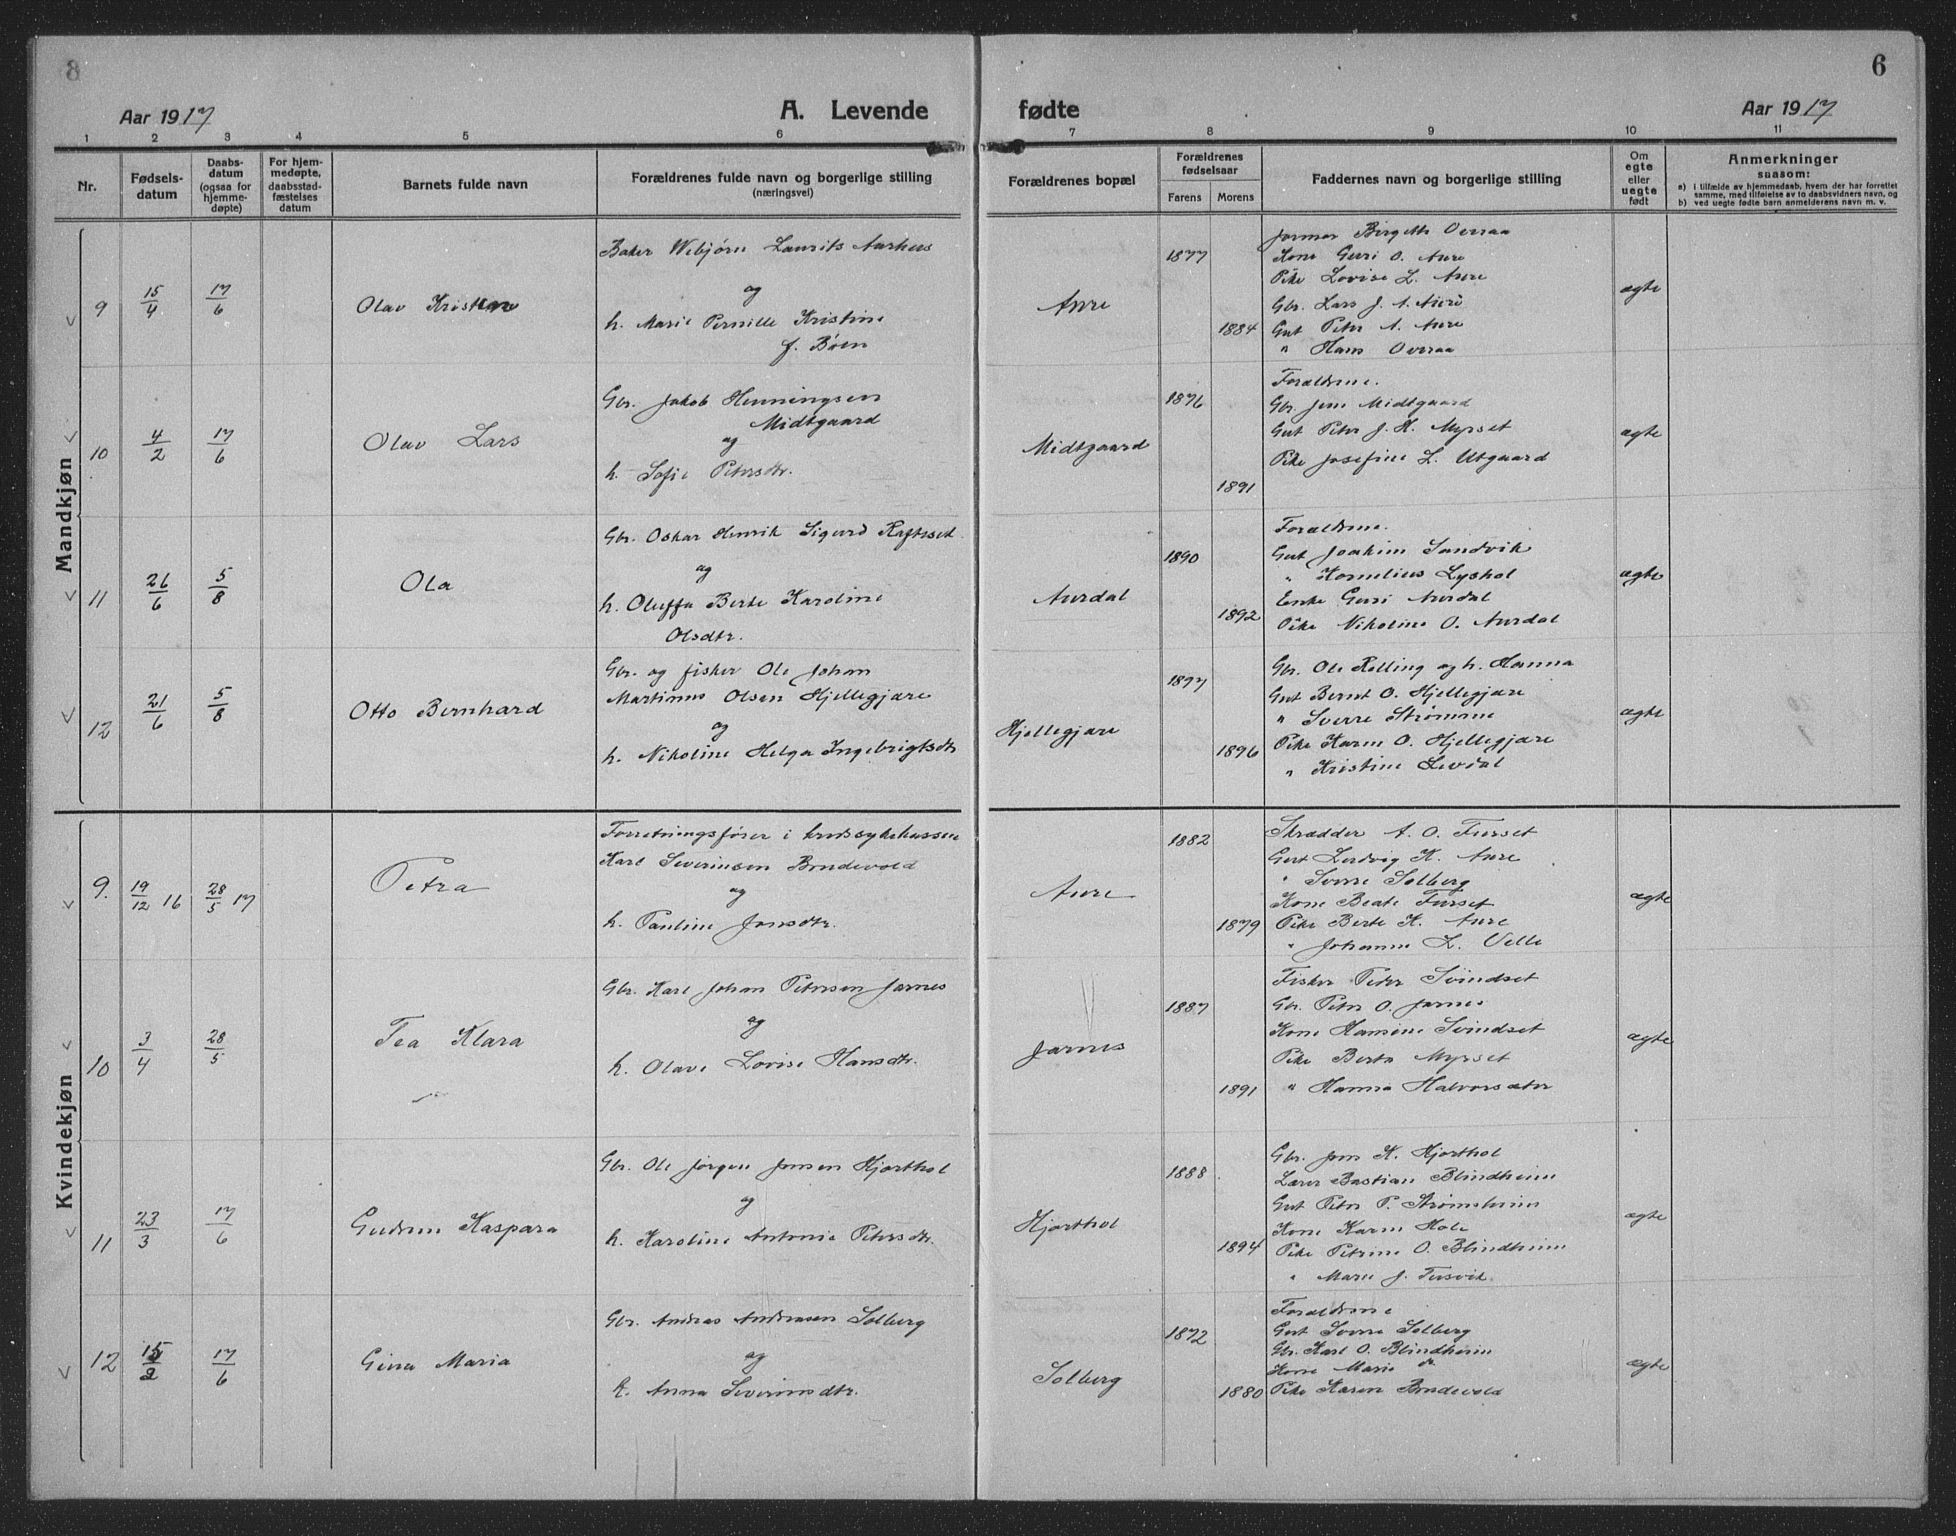 8
6
Aar 1917
A. Levende
fødte
Aar 1917
1 2 3 4 5 6 7 8 9 10 11
Nr.
Fødsels-
datum
Daabs-
datum
(ogsaa for
hjemme-
døpte)
For hjem-
medøpte,
daabsstad-
fæstelses
datum
Barnets fulde navn
Forældrenes fulde navn og borgerlige stilling
(næringsvei)
Forældrenes bopæl
Forældrenes
fødselsaar
Farens Morens
Faddernes navn og borgerlige stilling
Om
egte
eller
uegte
født
Anmerkninger
saasom:
a) i tilfælde av hjemmedaab, hvem der har forrettet
samme, med tilføielse av to daabsvidners navn, og
b) ved uegte fødte barn anmelderens navn m. v.
Mandkjøn
9 15/4 17/6 Olav
Baker Webjørn Laurits Aarhus
og
h. Marie Pernille Kristine
f. Bøen
Aure
1877
1884
Jormor Birgitte Overaa
Kone Guri O. Aure
Pike Lovise L. Aure
Gbr. Lars J. A. Aure
Gut Peter A. Aure
" Hans Overaa
ægte
10 4/2 17/6 Olav Lars
Gbr. Jakob Henningsen
Midtgaard
og
h. Sofie Petersdtr.
Midtgaard
1876
1891
Forældrene.
Gbr Jens Midtgaard
Gut Peter J. H. Myrset
Pike Josefine L. Utgaard
ægte
11 26/6 5/8 Ola
Gbr. Oskar Henrik Sigurd Rafteset
og
h. Oluffa Berte Karoline
Olsdtr.
Aurdal
1890
1892
Forældrene.
Gut Joakim Sandvik
" Kornelius Lyshol
Enke Guri Aurdal
Pike Nikoline O. Aurdal
ægte
12 21/6 5/8 Otto Bernhard
Gbr. og fisker Ole Johan
Martinus Olsen Hjellegjære
og
h. Nikoline Helga Ingebrigtsdtr
Hjellegjære
1897
1896
Gbr. Ole Relling og h. Hanna
Gut Bernt O. Hjellegjære
" Sverre Strømme
Pike Karen O. Hjellegjære
" Kristine Levdal
ægte
Kvindekjøn
9. 19/12 16 28/5 17 Petra
Forretningsfører i
Karl Severinsen Brudevold
og
h. Pauline Jonsdtr.
Aure
1882
1879
Skrædder A. O. Furset
Gut Ludvig K. Aure
" Sverre Solberg
Kone Beate Furset
Pike Berte K. Aure
" Johanne L. Velle
ægte
10 3/4 28/5 Tea Klara
Gbr. Karl Johan Petersen Jarnes
og
h. Olave Lovise Hansdtr.
Jarnes
1887
1891
Fisker Peter Svindset
Gbr. Peter O. Jarnes
Kone Hansine Svindset
Pike Berta Myrset
" Hanna Halvorsæter
ægte
11 23/3 17/6 Gudrun Kaspara
Gbr. Ole Jørgen Jensen Hjorthol
og
h. Karoline Antonie Petersdtr.
Hjorthol
1888
1894
Gbr. Jens K. Hjorthol
Lærer Bastian Blindheim
Gut Peter P. Strømsheim
Kone Karen Hole
Pike Petrine O. Blindheim
" Marie J. Tusvik
ægte
12 17/6 Gina Maria
Gbr. Andreas Andreasen Solberg
og
h. Anna Severinsdtr.
Solberg
1872
1880
Forældrene
Gut Sverre Solberg
Gbr. Karl O. Blindheim
Kone Marie do
Pike Karen Brudevold
ægte